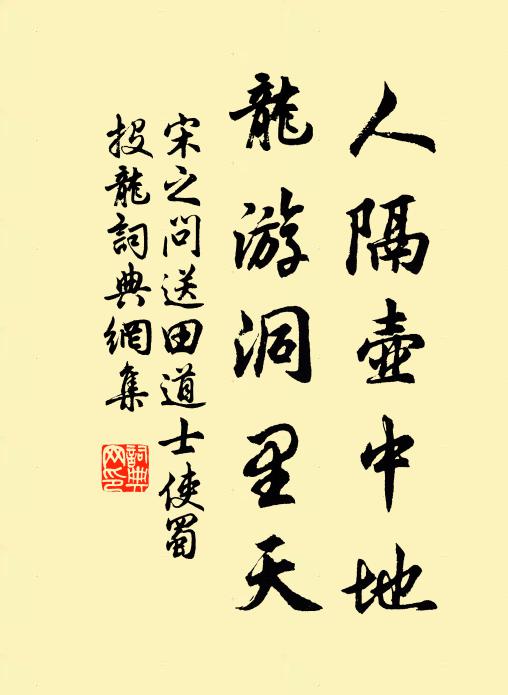 人隔壺中地
龍游洞里天
宋之問送田道士使蜀
投龍詞典網集
詞典
网印